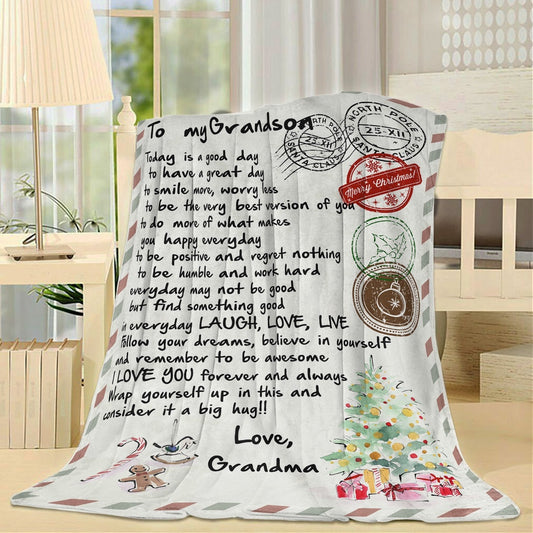 To my Grandson
Today is a good day
to have a great day
to smile more, worry less
to be the very best version of you
to do more of what makes
you happy everyday
to be positive and regret nothing
to be humble and work hard
everyday may not be good
but find something good
in everyday LAUGH, LOVE, LIVE
Follow your dreams, believe in yourself
and remember to be awesome
I LOVE YOU forever and always
Wrap yourself up in this and
consider it a big hug!!
Love,
Grandma
NORTH POLE
25·XII
SANTA CLAUS
NORTH POLE
25-XII
SANTA CLAUS
Merry Christmas!